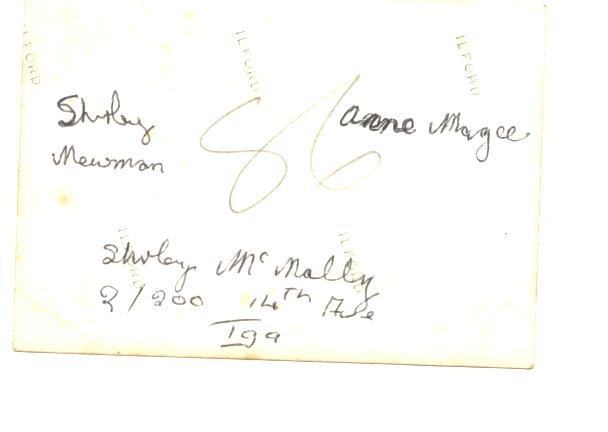 ILFORD ILFORD ILFORD
Shirley Newman
86
Anne Magee
ILFORD ILFORD
Shirley McNally
2/200 14TH Ave